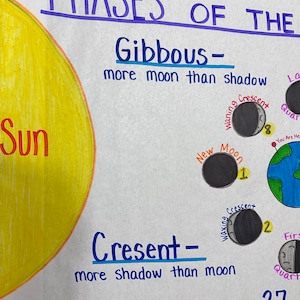 PHASES OF THE
Gibbous-
more moon than shadow
Sun
Waning Crescent
8
La
Quar
New Moon
1
You Are He
Waxing Crescent
2
Cresent-
more shadow than moon
Firs
Quart
27